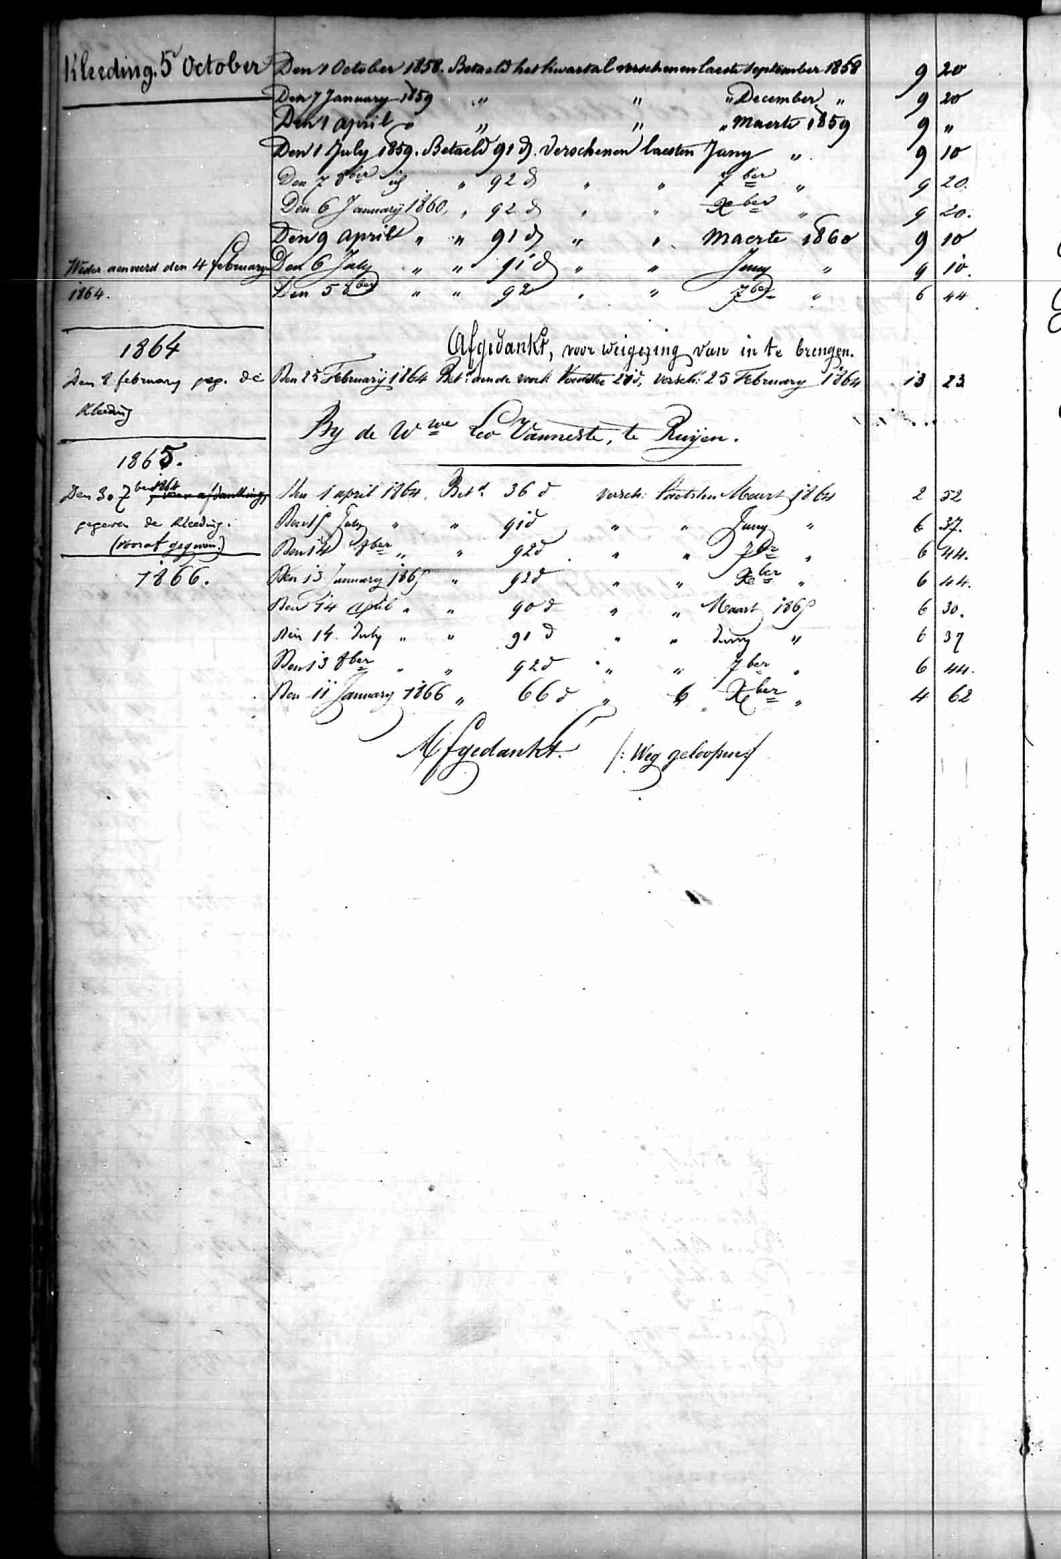 Kleeding. 5 October
Den 1 October 1858. Betaeld het kwartal verschenen laeste September 1858 9 20
Den 7 January 1859 " " " December " 9 20
Den 1 April " " " " Maerte 1859 9 "
Den 1 July 1859. Betaeld 91 d. Verschenen laesten Juny " 9 10
Den 7 8ber " 92 d " " 7ber " 9 20.
Den 6 January 1860 " 92 d " " Xber " 9 20.
Den 9 April " " 91 d " " Maerte 1860 9 10
Weder aenveerd den 4 february
1864.
Den 6 July " " 91 d " " Juny " 9 10.
Den 5 8ber " " 92 " " 7ber " 6 44
Afgedankt, voor weigering van in te brengen.
1864
Den 2 february geg. de
Kleeding
Den 25 Februarij 1864 Bet. verch. 25 February 1864 13 23
By de Wwe Leo Vanneste, te Ruijen.
1865.
Den 30 7ber 1864 voor afdanking
gegeven de kleeding.
(vooraf gegeven)
1866.
Den 1 april 1864. Betd. 36 d versch. laetsten Maart 1864 2 52
Den 15 July " " 91 d " " Juny " 6 37.
Den 14 8ber " " 92 d " " 7ber " 6 44.
Den 13 January 1865 " 92 d " " Xber " 6 44.
Den 14 april " " 90 d " " Maart 1865 6 30.
Den 14 July " " 91 d " " Juny " 6 37
Den 13 8ber " " 92 d " " 7ber " 6 44.
Den 11 January 1866 " 66 d " 6 Xber " 4 62
Afgedankt. /: Weg geloopen :/